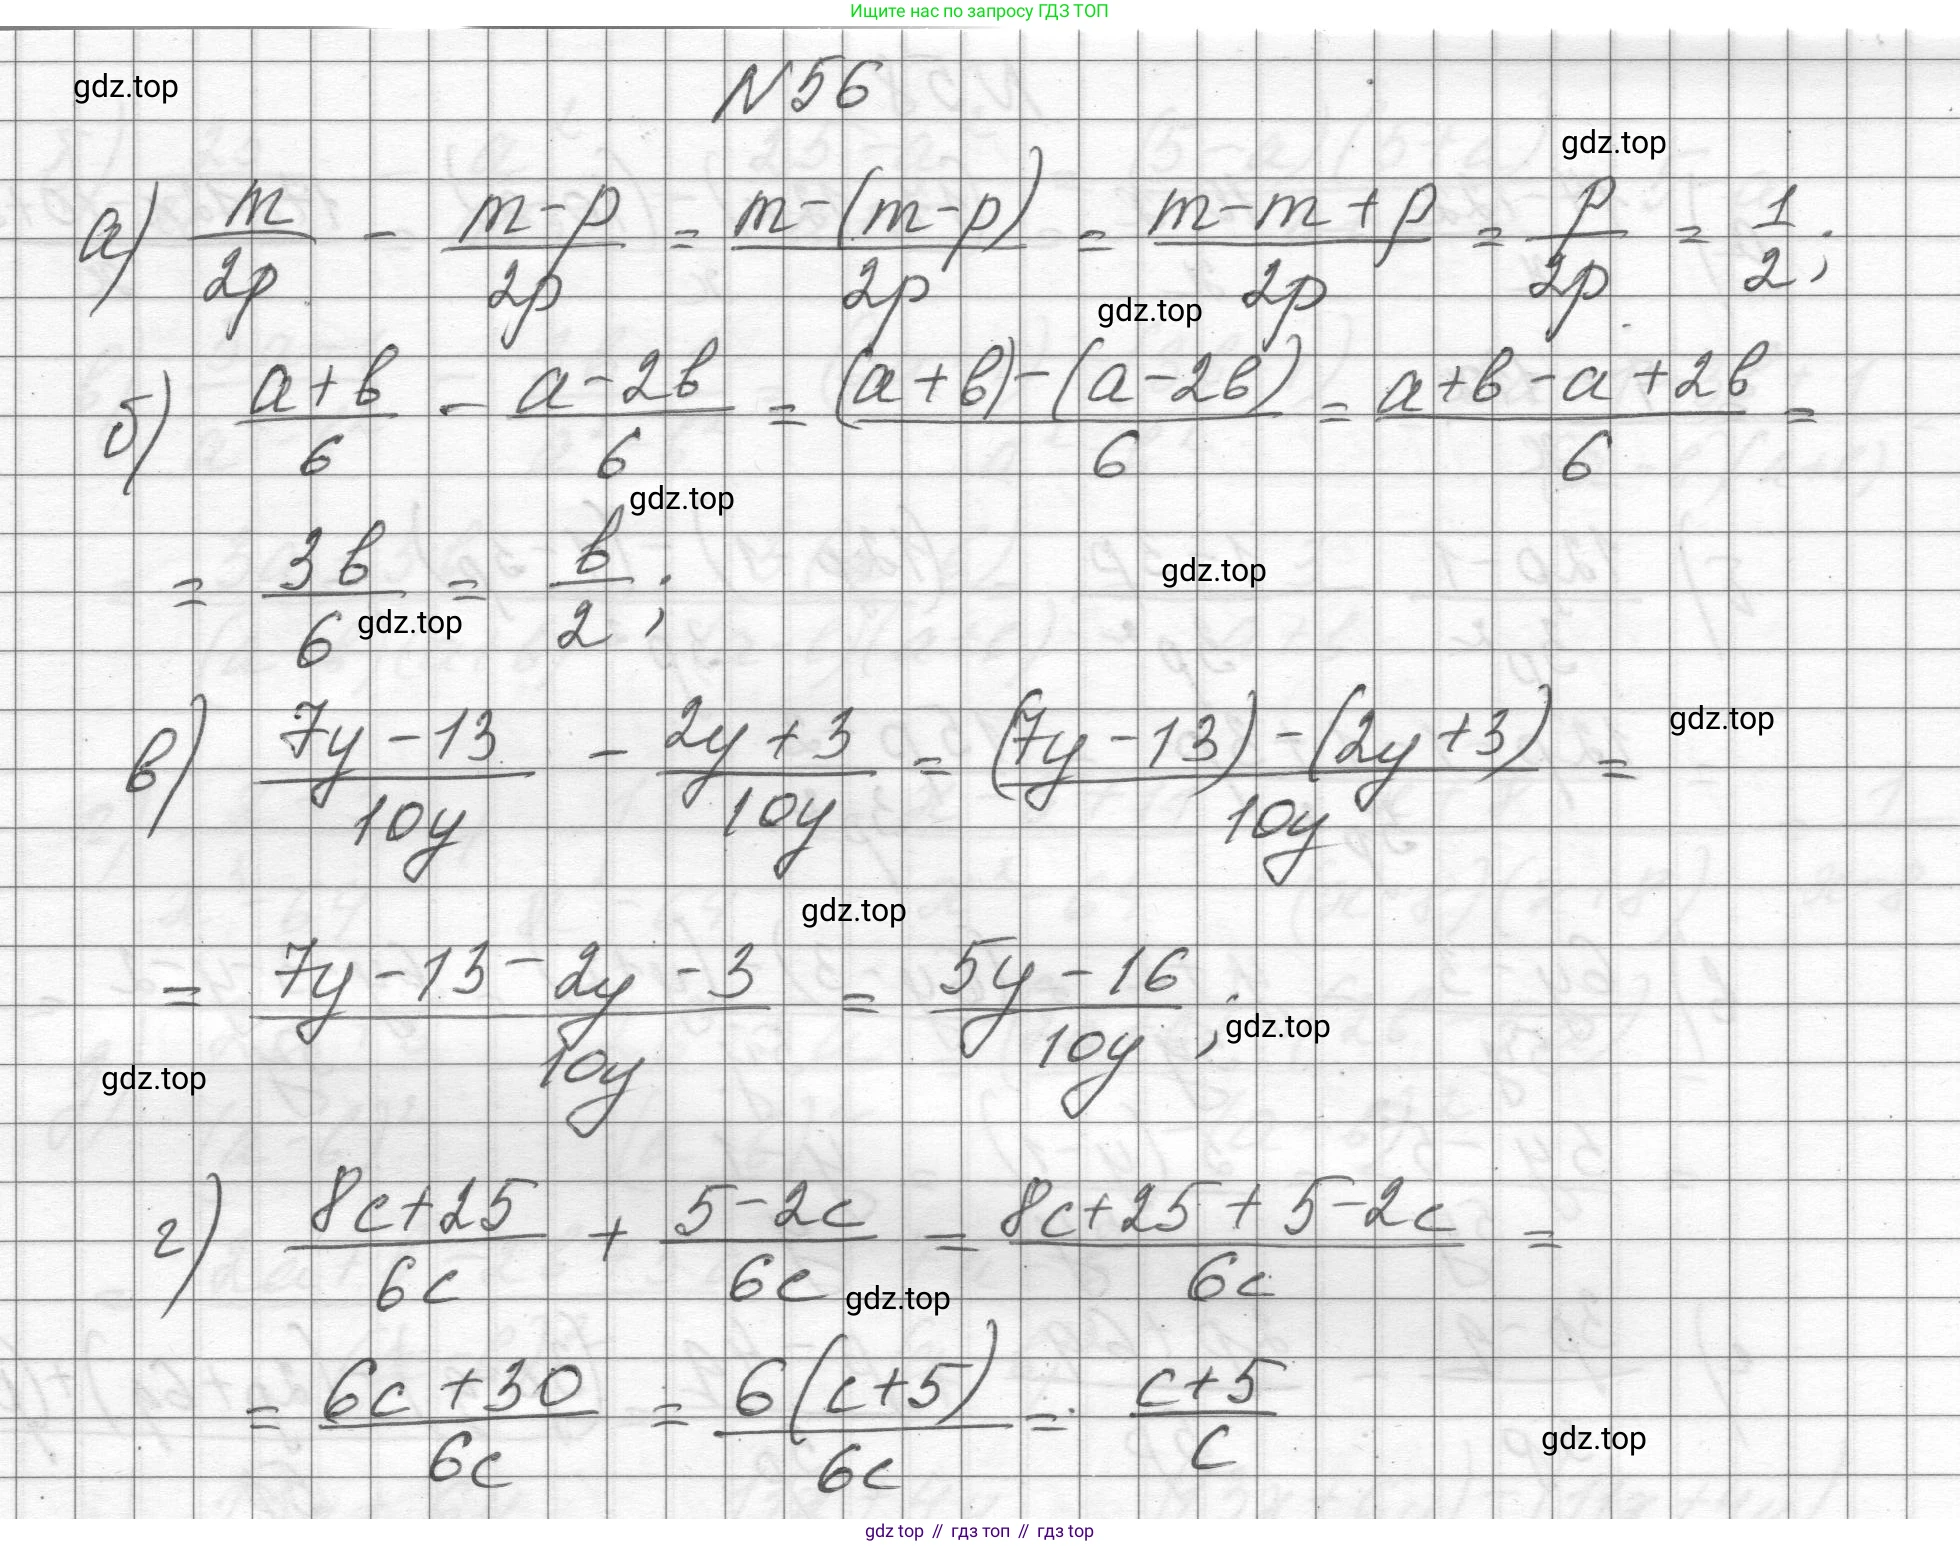 Ищите нас по запросу ГДЗ ТОП
gdz.top
N56
gdz.top
а) m/2p - (m-p)/2p = (m-(m-p))/2p = (m-m+p)/2p = p/2p = 1/2;
gdz.top
б) (a+b)/6 - (a-2b)/6 = ((a+b)-(a-2b))/6 = (a+b-a+2b)/6 =
gdz.top
= 3b/6 = b/2;
gdz.top
gdz.top
в) (7y-13)/10y - (2y+3)/10y = ((7y-13)-(2y+3))/10y =
gdz.top
gdz.top
= (7y-13-2y-3)/10y = (5y-16)/10y;
gdz.top
gdz.top
г) (8c+25)/6c + (5-2c)/6c = (8c+25+5-2c)/6c =
gdz.top
= (6c+30)/6c = 6(c+5)/6c = (c+5)/c
gdz.top
gdz top // гдз топ // гдз top